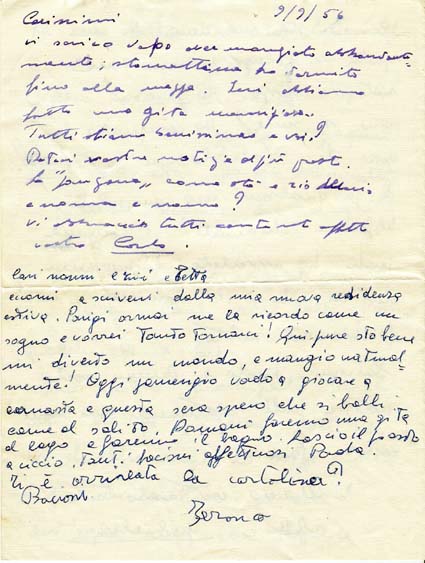 9/9/56
Carissimi
vi scrivo dopo aver mangiato abbondante-
mente; stamattina ho dormito
fino alla messa. Ieri abbiamo
fatto una gita
Tutti stiamo benissimo e voi?
vostre notizie al più presto.
La " come sta e zio
e nonna e nonno?
vi abbraccio tutti con tanto affetto
vostro Carlo.
Cari nonni e zii e Betta
eccomi a scrivervi dalla mia nuova residenza
estiva. Parigi ormai me la ricordo come un
sogno e vorrei tanto tornarci! Qui pure sto bene
mi diverto un mondo, e mangio natural-
mente! Oggi pomeriggio vado a giocare a
canasta e questa sera spero che si balli
come al solito. Domani faremo una gita
al lago e faremo il bagno. Lascio il posto
a ciccio. Tanti bacioni affettuosi Paola.
Vi è arrivata la cartolina?
Bacioni